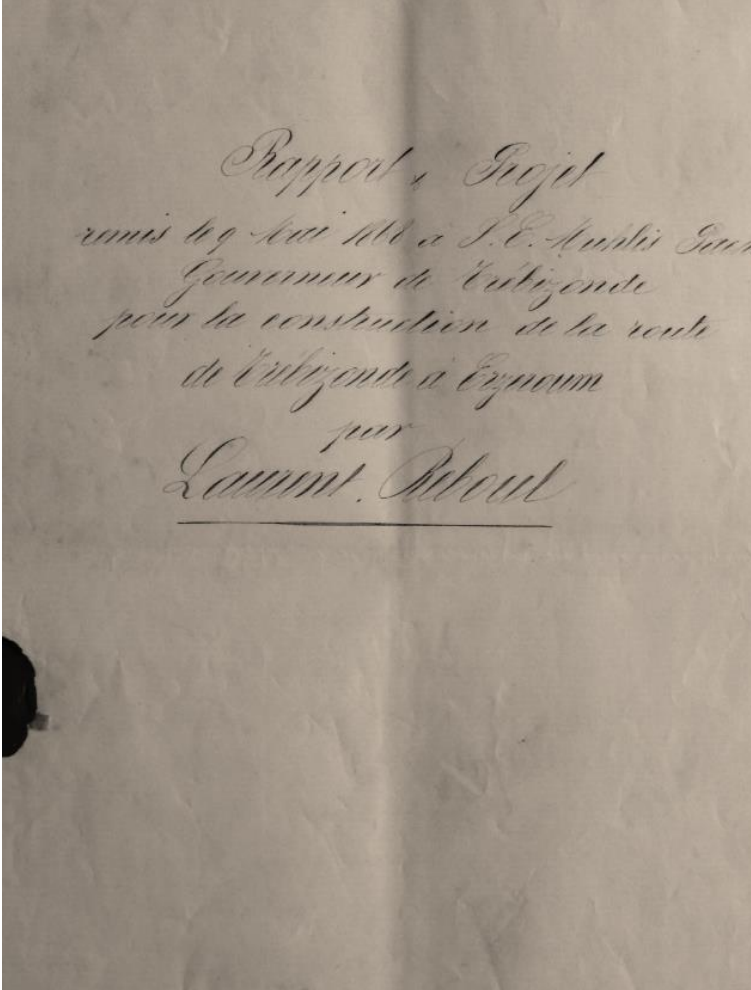 Rapport & Projet
remis le 9 Mai 1868 à S. E. Muhlis
Gouverneur de Trébizonde
pour la construction de la route
de Trébizonde à Erzeroum
par
Laurent. Reboul